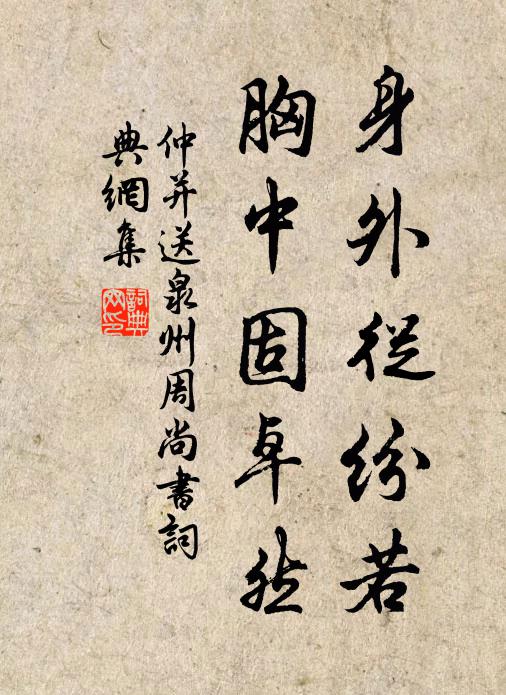 身外從紛若
胸中固卓然
仲并送泉州周尚書詞
典網集
詞典
网印